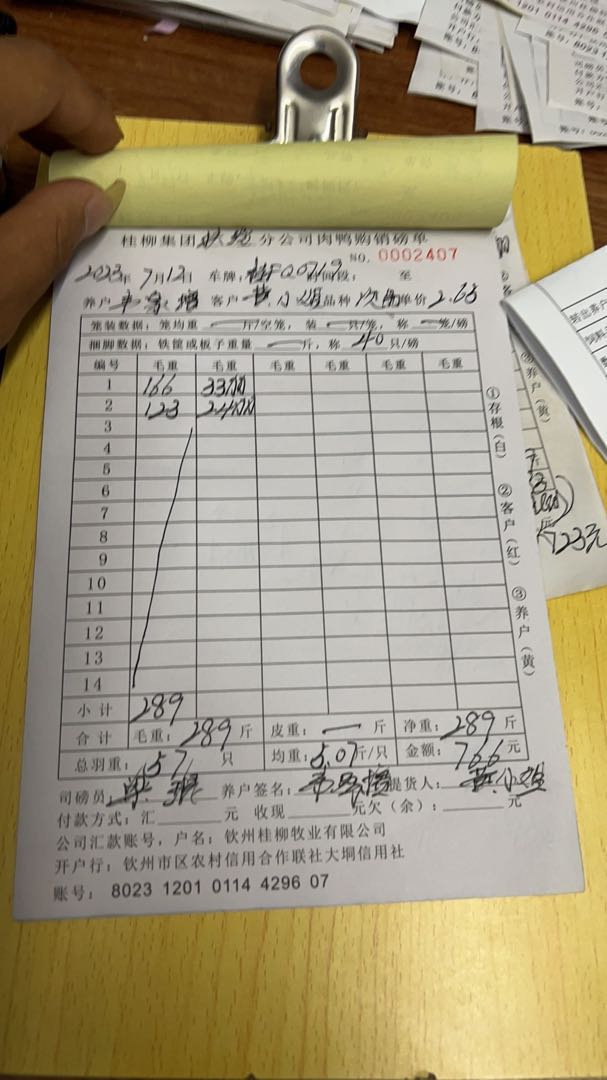 桂柳集团 分公司肉鸭购销磅单
NO. 0002407
2023年 7月12日 车牌: 时间段: 至
养户: 客户: 黄小娟 品种 单价 2.65
笼装数据: 笼均重 — 斤/空笼, 装 — 只/笼, 称 — 笼/磅
捆脚数据: 铁筐或板子重量 — 斤, 称 40 只/磅
编号 毛重 毛重 毛重 毛重 毛重 毛重
1 166 33
2 123 24
3
4
5
6
7
8
9
10
11
12
13
14
小计 289
合计 毛重: 289 斤 皮重: — 斤 净重: 289 斤
总羽重: 57 只 均重: 5.07 斤/只 金额: 766 元
司磅员: 养户签名: 提货人: 黄小娟
付款方式: 汇 元 收现 元欠(余): 元
公司汇款账号, 户名: 钦州桂柳牧业有限公司
开户行: 钦州市区农村信用合作联社大垌信用社
账号: 8023 1201 0114 4296 07
①存根(白) ②客户(红) ③养户(黄)
③养户(黄)
723元
1201 0114 4296
账号: 8023